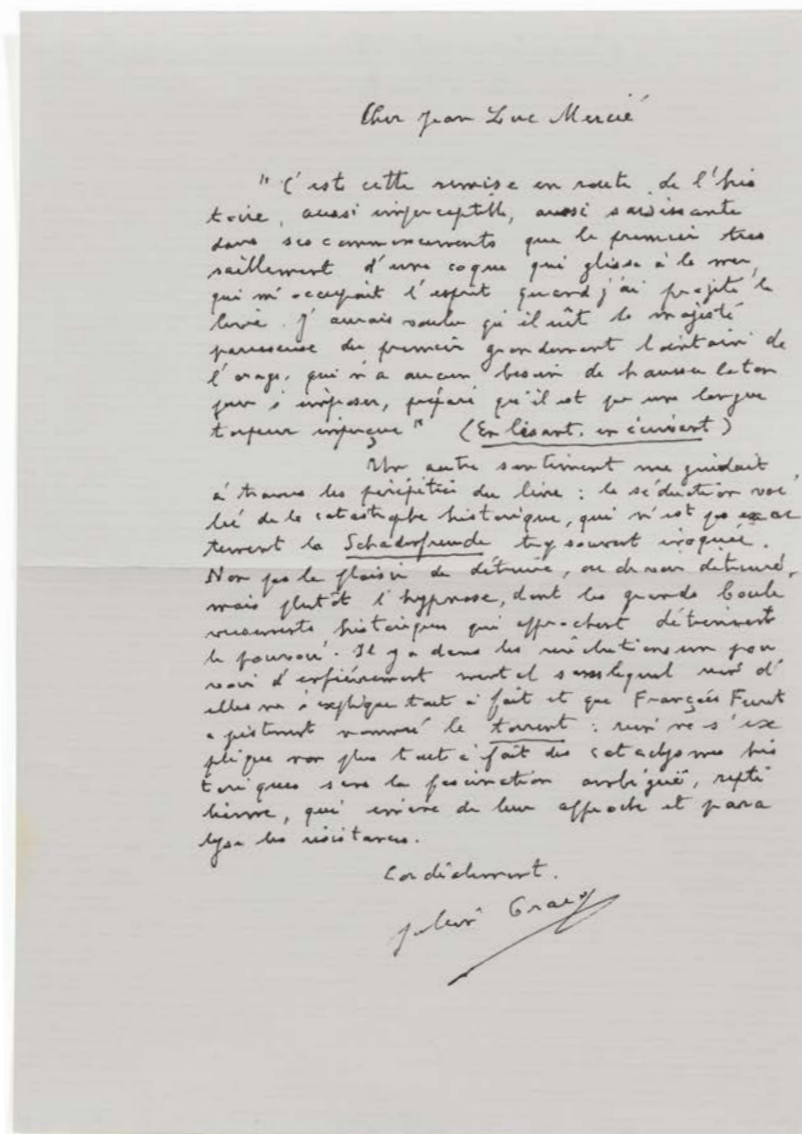 Cher Jean Luc Mercié
" C'est cette remise en route de l'his
toire, aussi imperceptible, aussi saisissante
dans ses commencements que le premier tres
saillement d'une coque qui glisse à la mer,
qui m'occupait l'esprit quand j'ai projeté le
livre. J'aurais voulu qu'il eût la majesté
paresseuse du premier grondement lointain de
l'orage, qui n'a aucun besoin de hausser le ton
pour s'imposer, préparé qu'il est par une longue
torpeur imperçue " (En lisant, en écrivant)
Un autre sentiment me guidait
à travers les péripéties du livre : la séduction
de la catastrophe historique, qui n'est pas exac
tement la Schadenfreude trop souvent invoquée.
Non pas le plaisir de détruire, ou de voir détruire,
mais plutôt l'hypnose, dont les grands boule
versements historiques qui approchent détiennent
le pouvoir. Il y a dans les révolutions un pou
voir d'enfièvrement mental sans lequel rien d'
elles ne s'explique tout à fait et que François Furet
a justement nommé le torrent : rien ne s'ex
plique non plus tout à fait des cataclysmes his
toriques sans la fascination ambiguë, repti
lienne, qui émane de leur approche et para
lyse les résistances.
Cordialement.
Julien Gracq